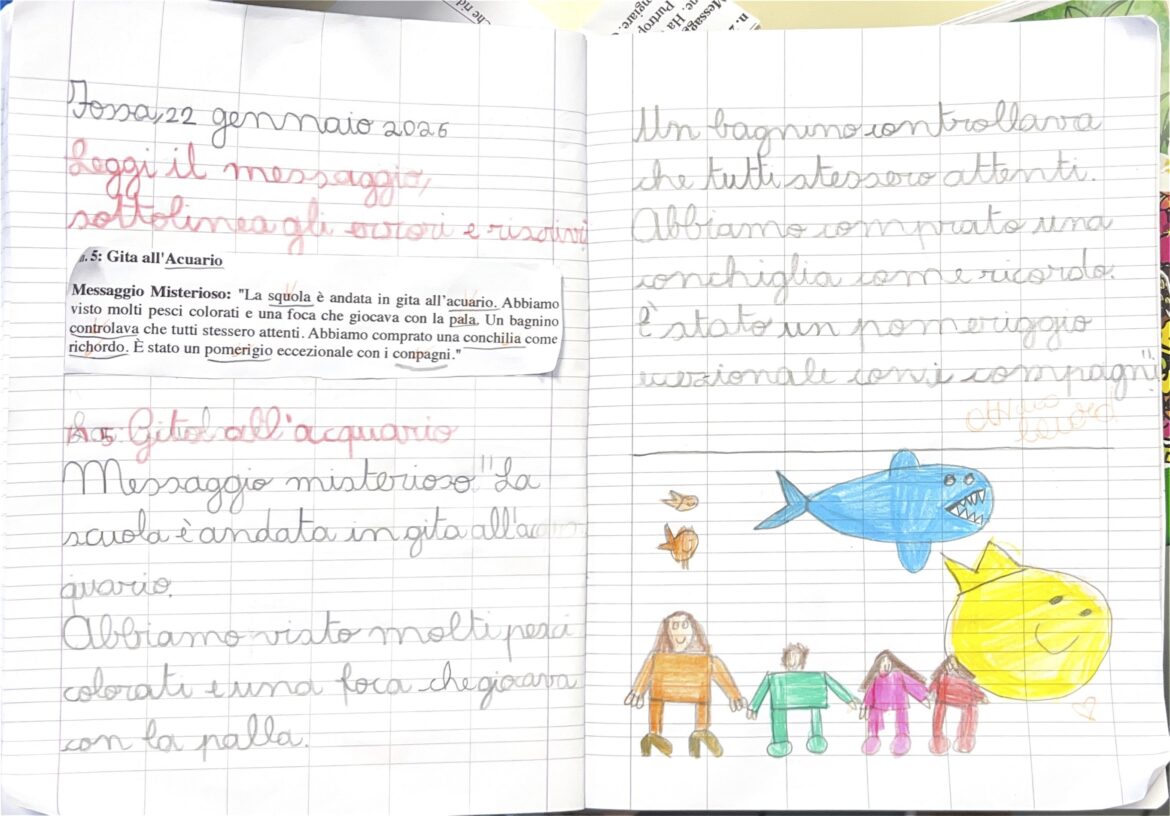 Fossa, 22 gennaio 2026
Leggi il messaggio,
sottolinea gli errori e riscrivi
n. 5: Gita all'Acuario
Messaggio Misterioso: "La squola è andata in gita all'acuario. Abbiamo
visto molti pesci colorati e una foca che giocava con la pala. Un bagnino
controlava che tutti stessero attenti. Abbiamo comprato una conchilia come
richordo. È stato un pomerigio eccezionale con i conpagni."
5: Gita all'acquario
Messaggio misterioso "La
scuola è andata in gita all'ac
quario.
Abbiamo visto molti pesci
colorati e una foca che giocava
con la palla.
Un bagnino controllava
che tutti stessero attenti.
Abbiamo comprato una
conchiglia come ricordo.
È stato un pomeriggio
eccezionale con i compagni".
Ottimo
lavoro!